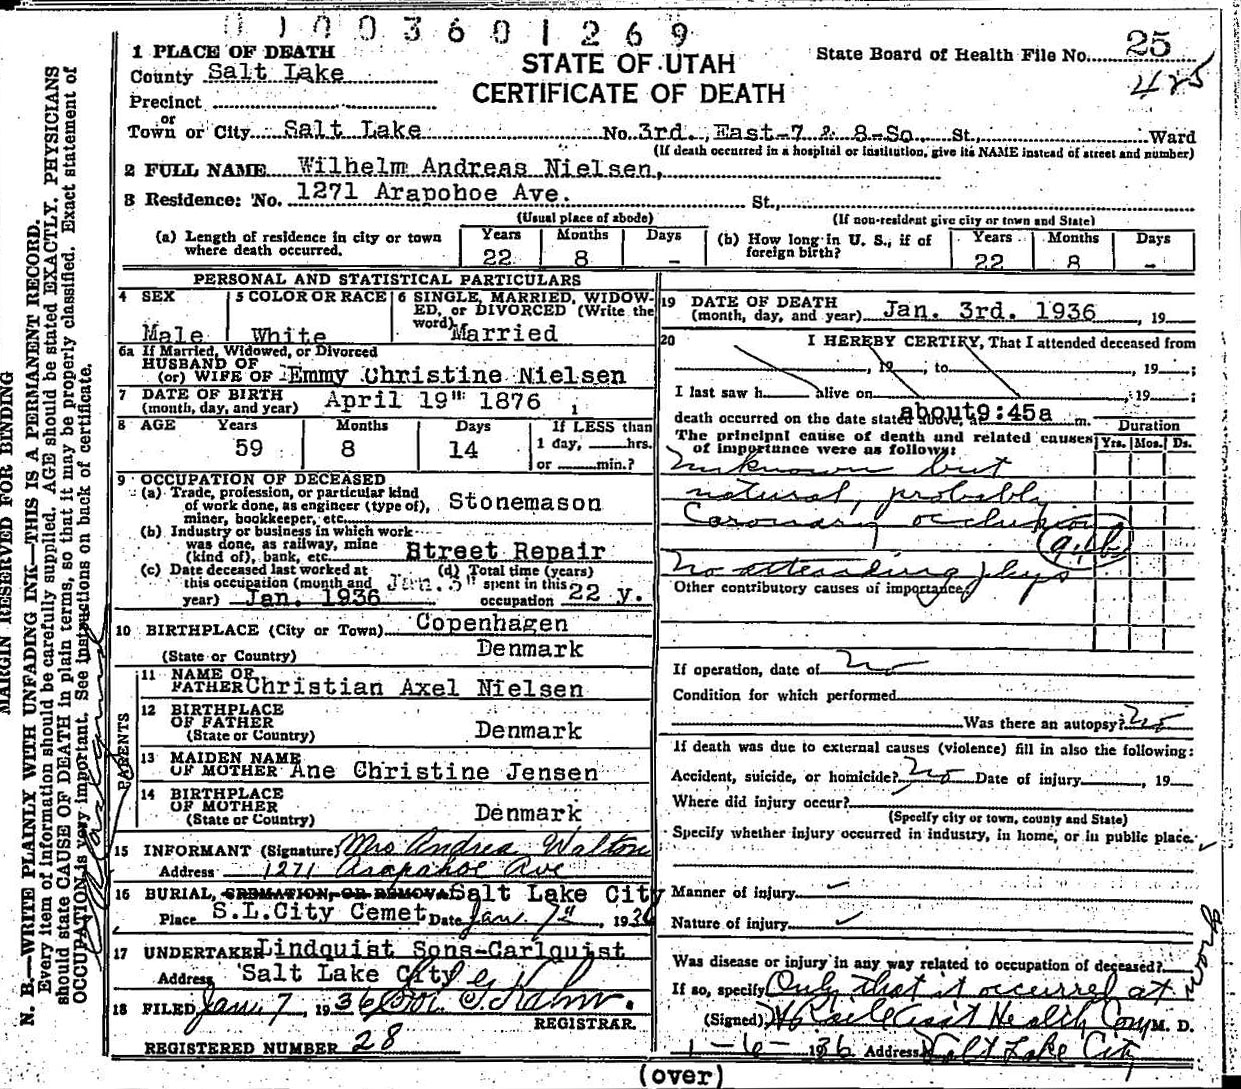 01003601269
1 PLACE OF DEATH
STATE OF UTAH
CERTIFICATE OF DEATH
State Board of Health File No. 25
485
County Salt Lake
Precinct
or
Town or City Salt Lake No. 3rd. East-7 & 8-So St., Ward
(If death occurred in a hospital or institution, give its NAME instead of street and number)
2 FULL NAME Wilhelm Andreas Nielsen,
3 Residence: No. 1271 Arapohoe Ave. St.,
(Usual place of abode) (If non-resident give city or town and State)
(a) Length of residence in city or town where death occurred. Years 22 Months 8 Days -
(b) How long in U. S., if of foreign birth? Years 22 Months 8 Days -
PERSONAL AND STATISTICAL PARTICULARS
4 SEX Male
5 COLOR OR RACE White
6 SINGLE, MARRIED, WIDOWED, or DIVORCED (Write the word) Married
6a If Married, Widowed, or Divorced
HUSBAND OF
(or) WIFE OF Emmy Christine Nielsen
7 DATE OF BIRTH
(month, day, and year) April 19" 1876
8 AGE Years 59 Months 8 Days 14 If LESS than 1 day, hrs. or min.?
9 OCCUPATION OF DECEASED
(a) Trade, profession, or particular kind of work done, as engineer (type of), miner, bookkeeper, etc. Stonemason
(b) Industry or business in which work was done, as railway, mine (kind of), bank, etc. Street Repair
(c) Date deceased last worked at this occupation (month and year) Jan. 1936 Jan. 3"
(d) Total time (years) spent in this occupation 22 y.
10 BIRTHPLACE (City or Town) Copenhagen
(State or Country) Denmark
PARENTS
11 NAME OF FATHER Christian Axel Nielsen
12 BIRTHPLACE OF FATHER
(State or Country) Denmark
13 MAIDEN NAME OF MOTHER Ane Christine Jensen
14 BIRTHPLACE OF MOTHER
(State or Country) Denmark
15 INFORMANT (Signature) Mrs Andrea Walton
Address 1271 Arapahoe Ave
16 BURIAL, CREMATION, OR REMOVAL Salt Lake City
Place S.L.City Cemet Date Jan. 7" , 1936
17 UNDERTAKER Lindquist Sons-Carlquist
Address Salt Lake City
18 FILED Jan. 7, 1936
REGISTRAR.
REGISTERED NUMBER 28
19 DATE OF DEATH
(month, day, and year) Jan. 3rd. 1936 , 19
20 I HEREBY CERTIFY, That I attended deceased from
, 19 ; to , 19 ;
I last saw h alive on , 19 ;
death occurred on the date stated above, at about9:45a m.
The principal cause of death and related causes of importance were as follows:
Duration
Yrs. Mos. Ds.
Unknown but
natural, probably
Coronary occlusion
No attending phys
Other contributory causes of importance:
If operation, date of no
Condition for which performed
Was there an autopsy? No
If death was due to external causes (violence) fill in also the following:
Accident, suicide, or homicide? No Date of injury , 19
Where did injury occur?
(Specify city or town, county and State)
Specify whether injury occurred in industry, in home, or in public place.
Manner of injury
Nature of injury
Was disease or injury in any way related to occupation of deceased?
If so, specify Only that it occurred at
work
(Signed) Health Com M. D.
1-6-1936 Address Salt Lake City
(over)
MARGIN RESERVED FOR BINDING
N. B.—WRITE PLAINLY WITH UNFADING INK—THIS IS A PERMANENT RECORD.
Every item of information should be carefully supplied. AGE should be stated EXACTLY. PHYSICIANS
should state CAUSE OF DEATH in plain terms, so that it may be properly classified. Exact statement of
OCCUPATION is very important. See instructions on back of certificate.